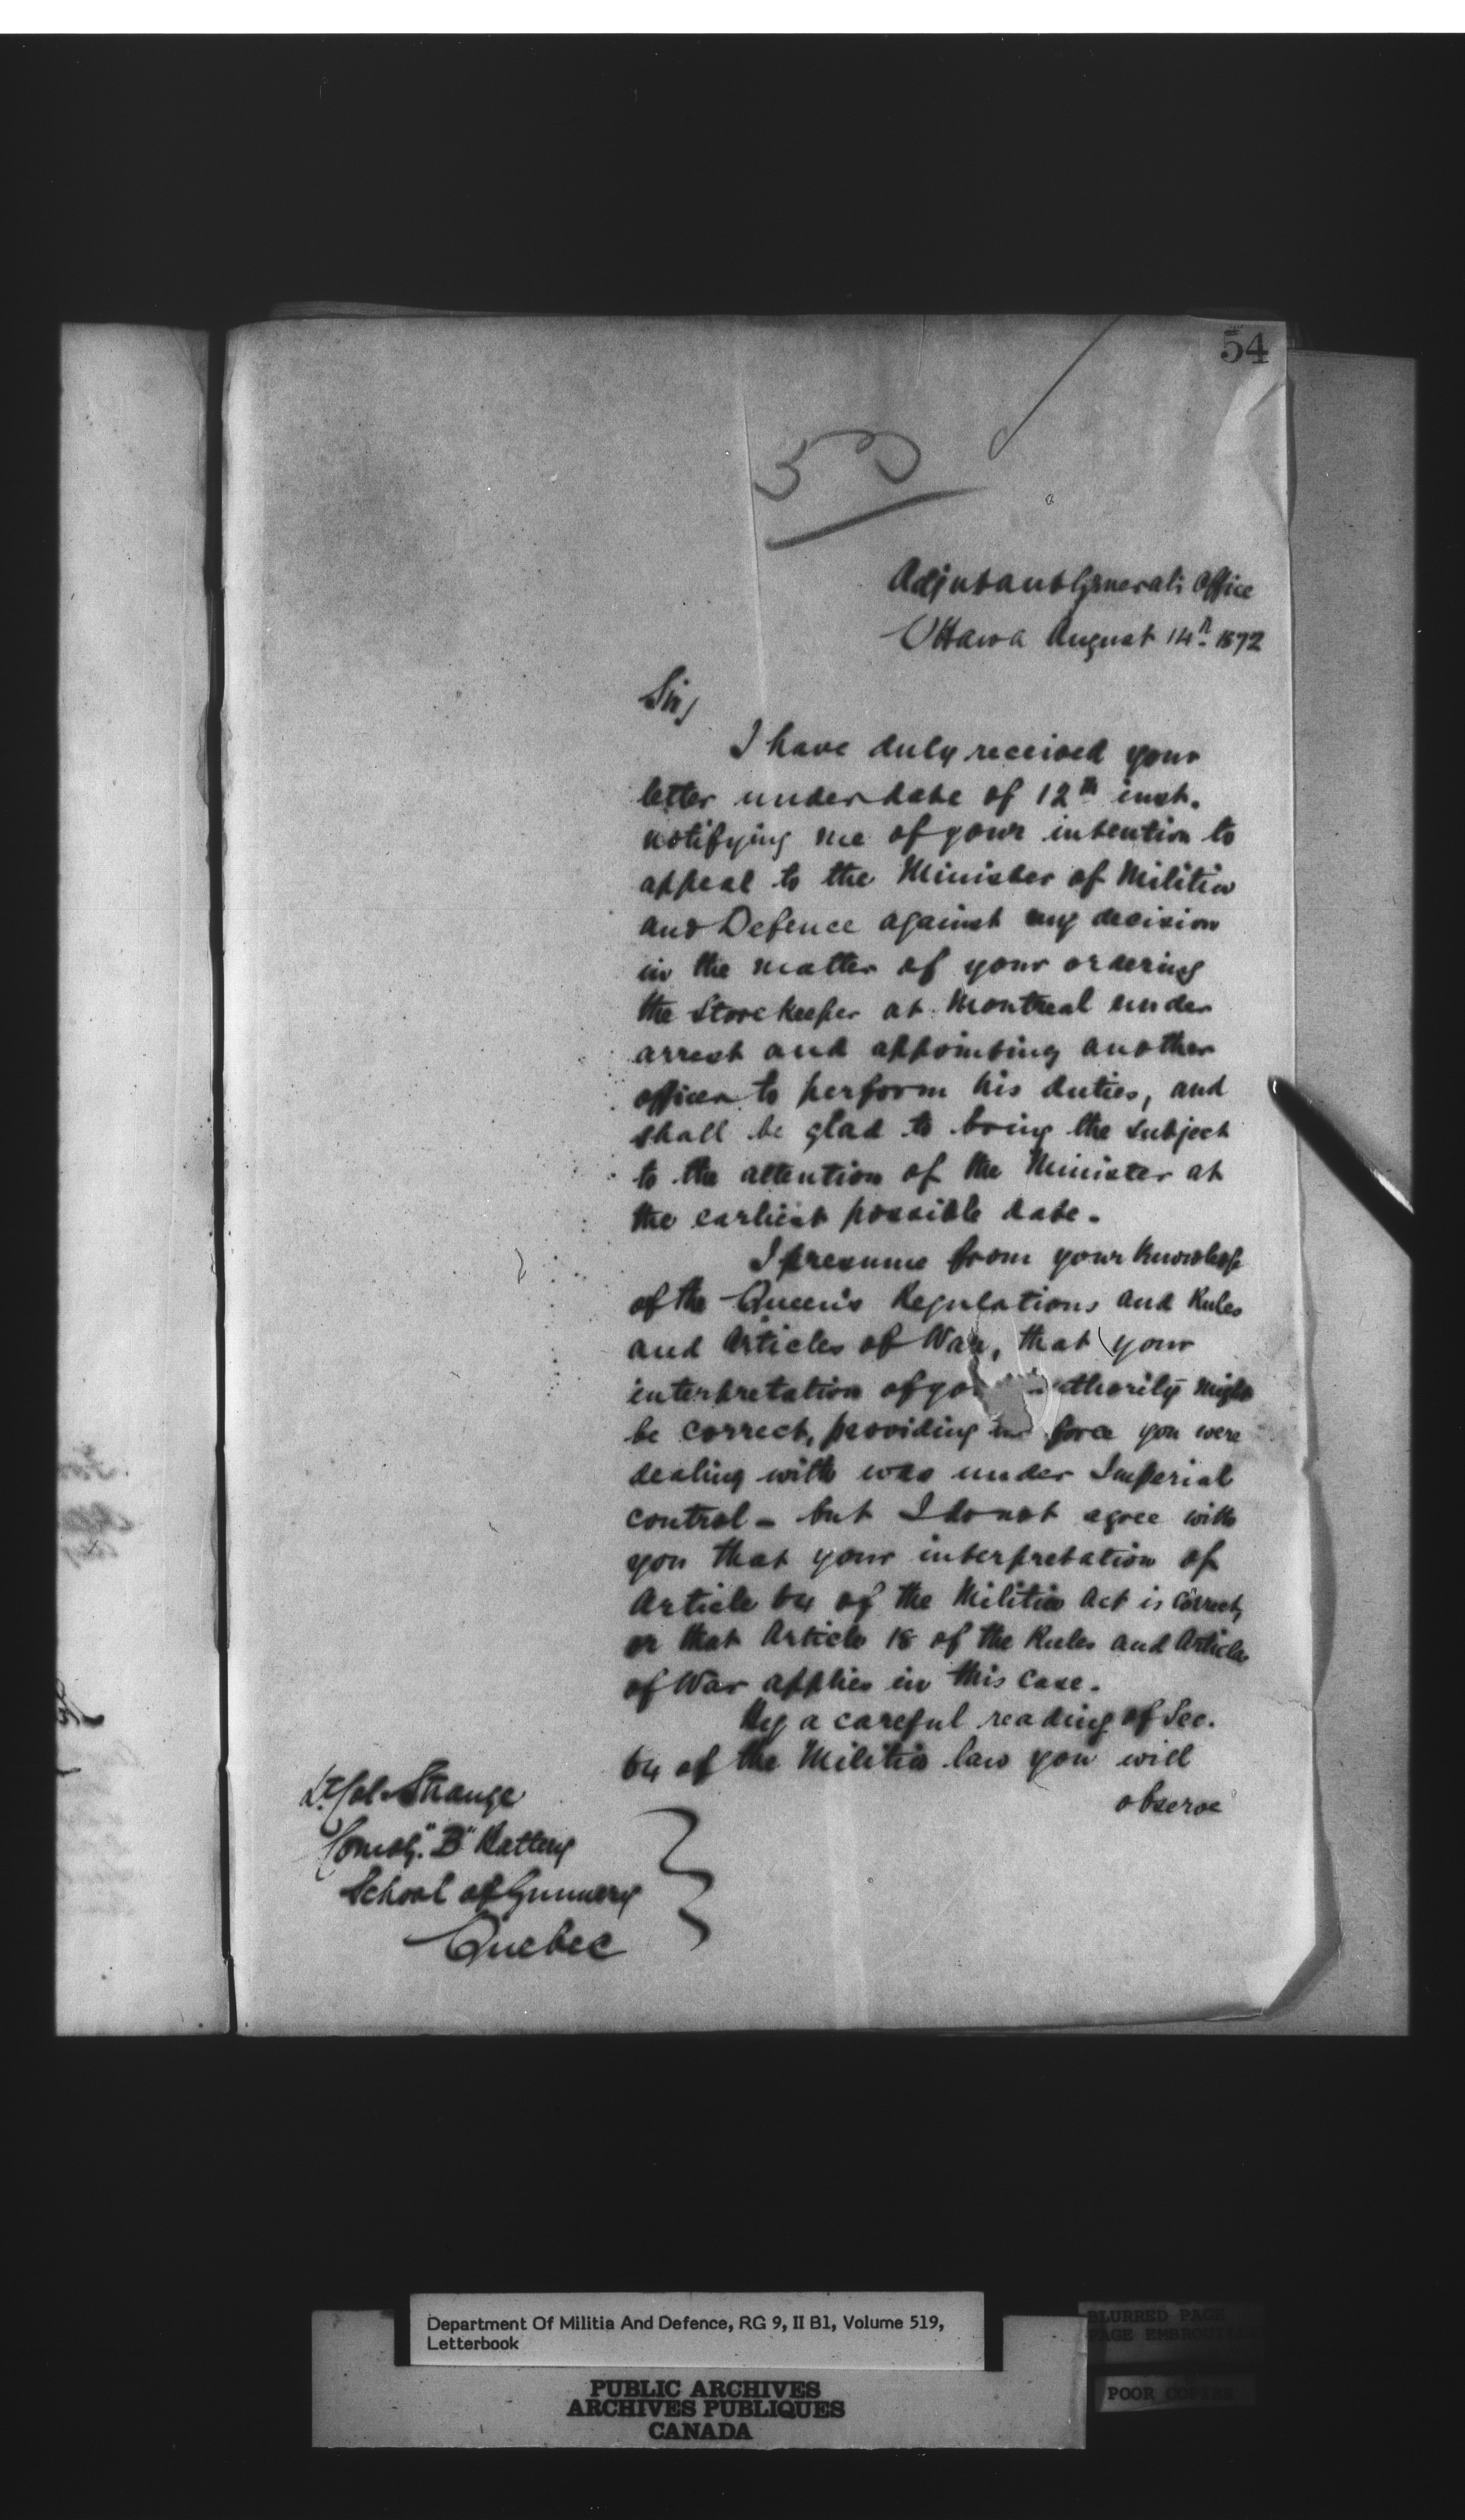 54
53
Adjutant General's Office
Ottawa August 14th 1872
Sir,
I have duly received your
letter under date of 12th inst.
notifying me of your intention to
appeal to the Minister of Militia
and Defence against my decision
in the matter of your ordering
the Storekeeper at Montreal under
arrest and appointing another
officer to perform his duties, and
shall be glad to bring the subject
to the attention of the Minister at
the earliest possible date.
I presume from your knowledge
of the Queen's Regulations and Rules
and Articles of War, that your
interpretation of yo thority might
be correct, providing force you were
dealing with was under Imperial
control - but I do not agree with
you that your interpretation of
Article 64 of the Militia Act is correct,
or that Article 18 of the Rules and Articles
of War applies in this case.
By a careful reading of Sec.
64 of the Militia law you will
observe
Lt. Col. Strange
Comdg. "B" Battery
School of Gunnery
Quebec
Department Of Militia And Defence, RG 9, II B1, Volume 519,
Letterbook
PUBLIC ARCHIVES
ARCHIVES PUBLIQUES
CANADA
BLURRED PAGE
PAGE EMBROUI
POOR COPIES